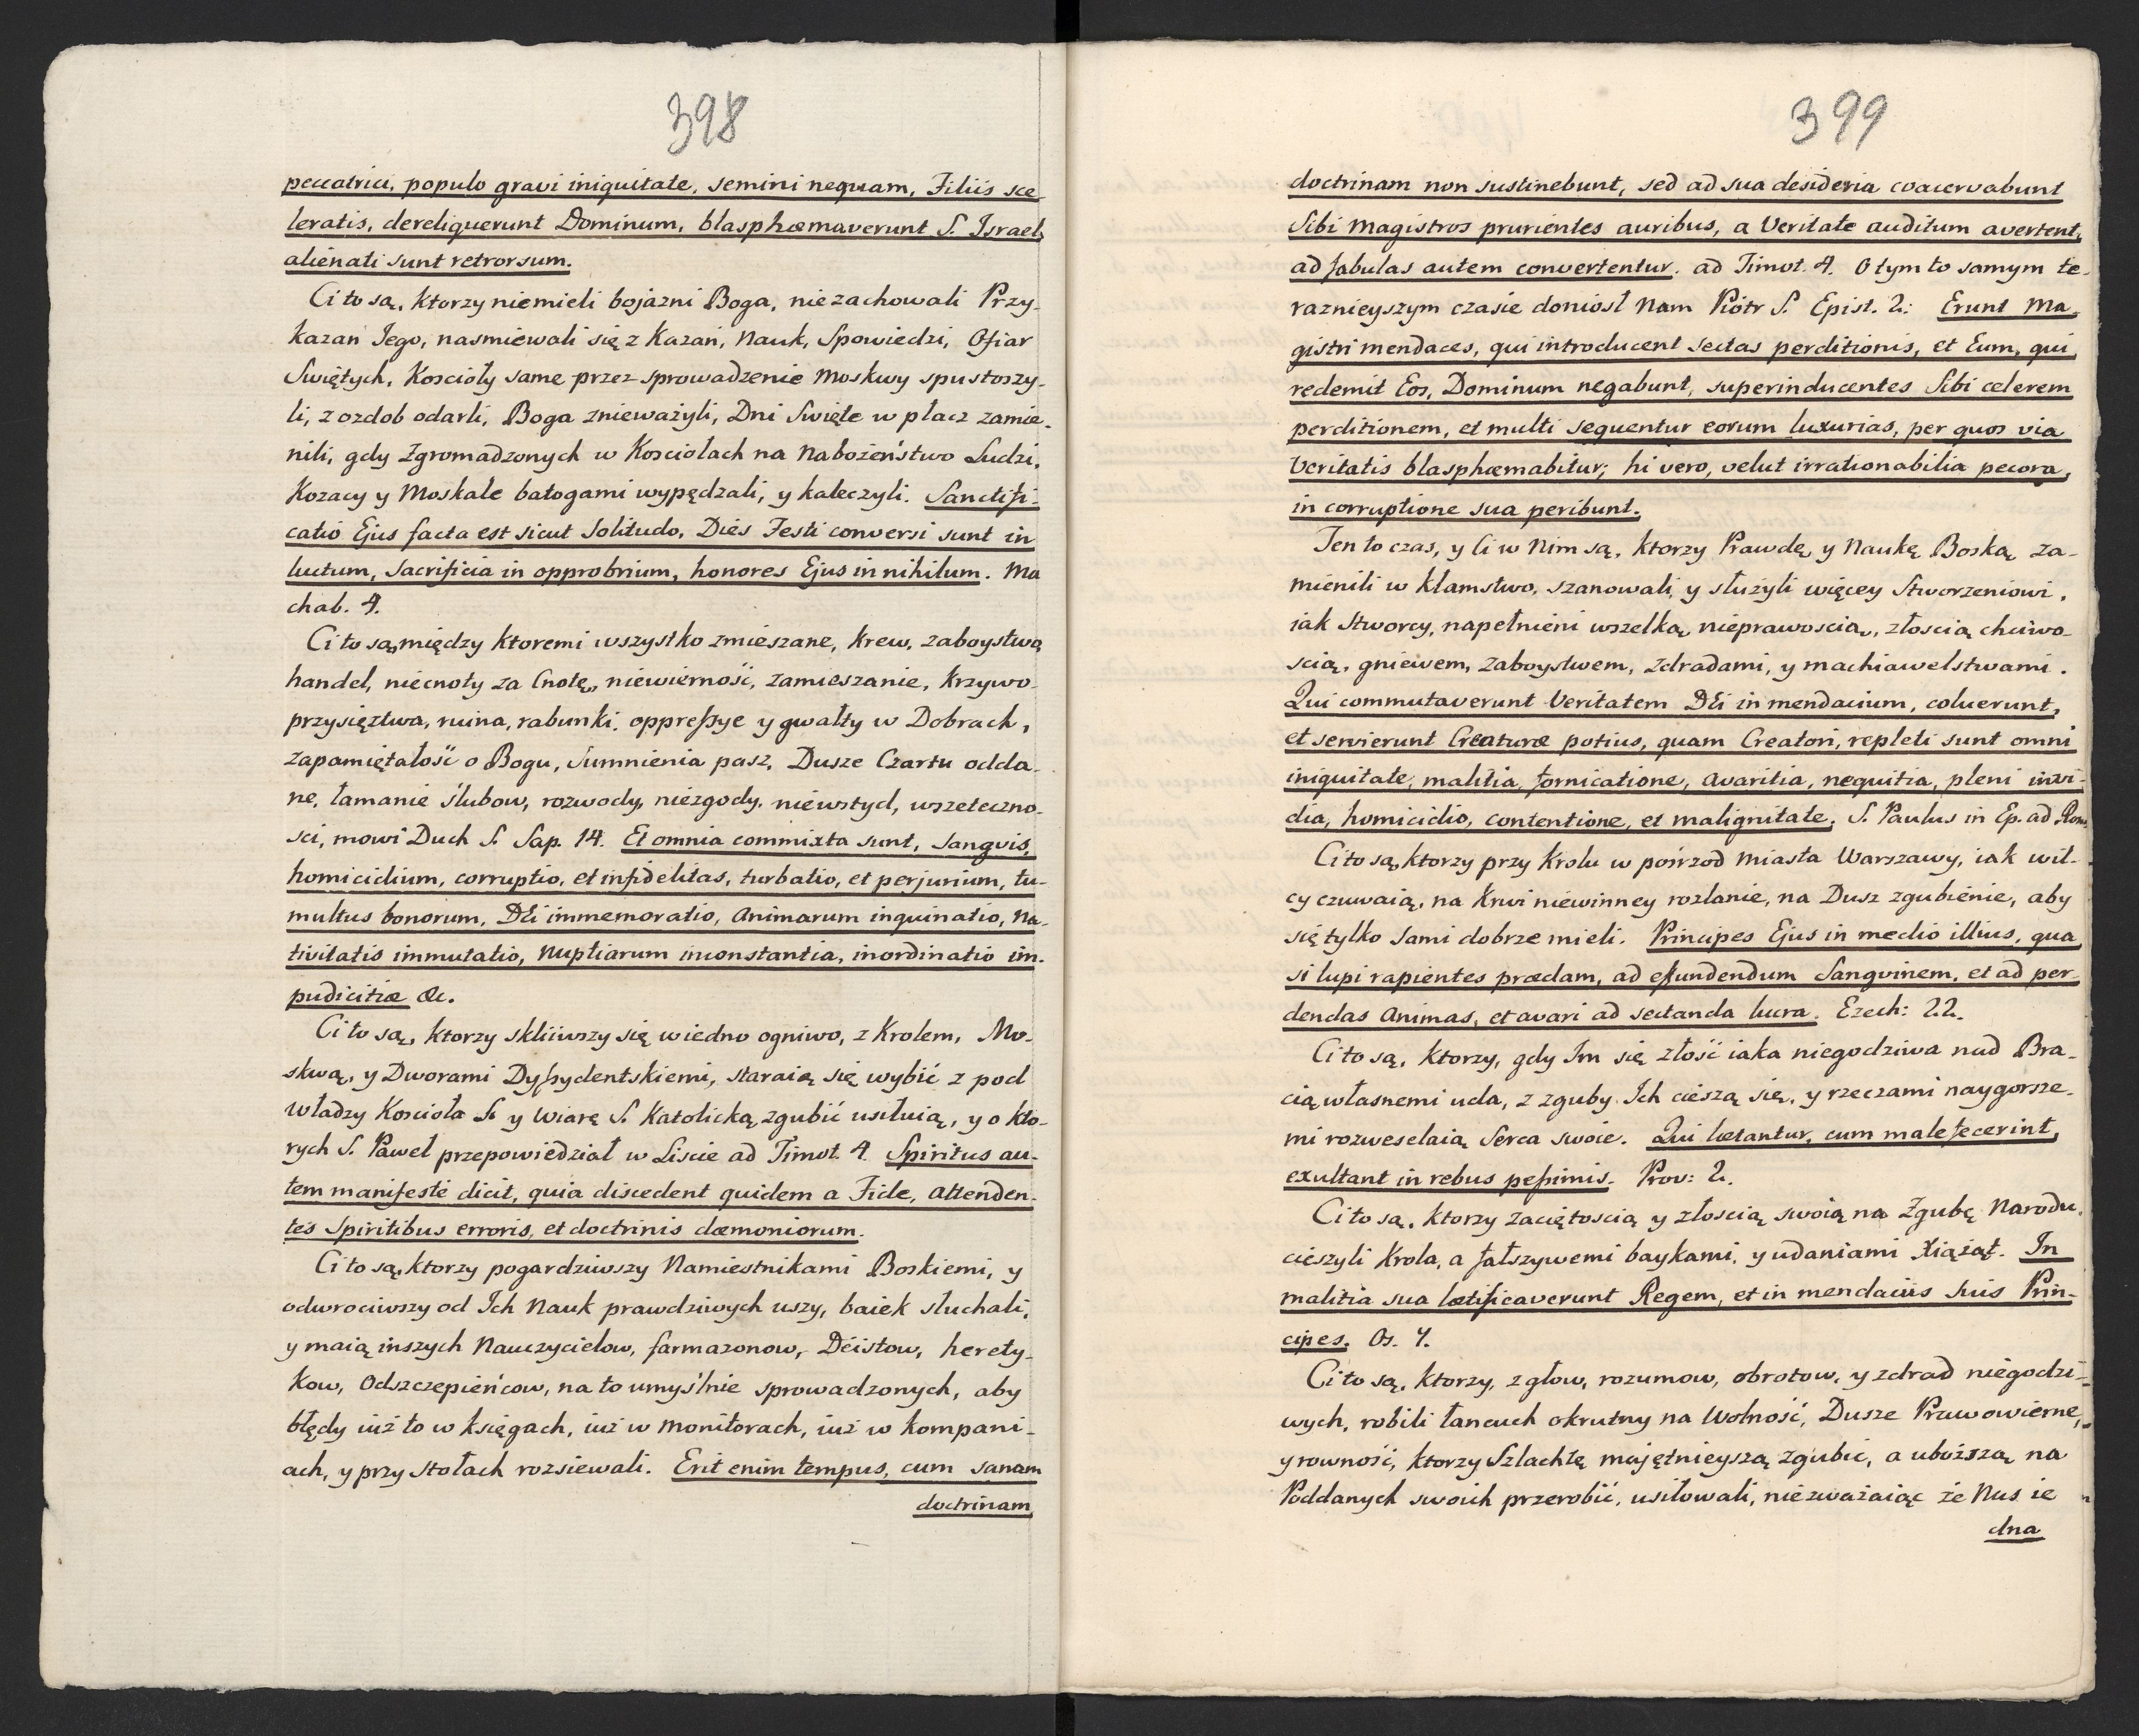 398
peccatrici, populo gravi iniquitate, semini nequam, Filiis sce
leratis, dereliquerunt Dominum, blasphæmaverunt S. Israel,
alienati sunt retrorsum.
Ci to są, ktorzy niemieli bojazni Boga, niezachowali Przy-
kazan Jego, nasmiewali się z Kazań, Nauk, Spowiedzi, Ofiar
Swiętych, Koscioły same przez sprowadzenie Moskwy spustoszy-
li, z ozdob odarli, Boga znieważyli, Dni Swięte w płacz zamie-
nili, gdy Zgromadzonych w Kosciołach na Nabożeństwo Ludzi,
Kozacy y Moskale batogami wypędzali, y kaleczyli. Sanctifi-
catio Ejus facta est sicut Solitudo, Dies Festi conversi sunt in
luctum, Sacrificia in opprobrium, honores Ejus in nihilum. Ma
chab. 4.
Ci to są, między ktoremi wszystko zmieszane, krew, zaboystwa
handel, niecnoty za Cnotę, niewierność, zamieszanie, krzywo-
przysięztwa, ruina, rabunki, oppressye y gwałty w Dobrach,
zapamiętałość o Bogu, Sumnienia pasz, Dusze Czartu odda-
ne, łamanie ślubow, rozwody, niezgody, niewstyd, wszeteczno-
sci, mowi Duch S. Sap. 14. Et omnia commixta sunt, Sangvis,
homicidium, corruptio, et infidelitas, turbatio, et perjurium, tu-
multus bonorum, DEi immemoratio, Animarum inquinatio, Na-
tivitatis immutatio, Nuptiarum inconstantia, inordinatio im-
pudicitiæ &c.
Ci to są, ktorzy skliiwszy się wiedno ogniwo, z Krolem, Mo-
skwą, y Dworami Dyssydentskiemi, staraią się wybić z pod
Władzy Kościoła S. y Wiarę S. Katolicką zgubić usiłuią, y o kto-
rych S. Paweł przepowiedział w Liscie ad Timot. 4. Spiritus au-
tem manifeste dicit, quia discedent quidem a Fide, attenden-
tes Spiritibus erroris, et doctrinis dæmoniorum.
Ci to są, ktorzy pogardziwszy Namiestnikami Boskiemi, y
odwrociwszy od Ich Nauk prawdziwych uszy, baiek słuchali,
y maią inszych Nauczycielow, farmazonow, Deistow, herety-
kow, Odszczepieńcow, na to umyślnie sprowadzonych, aby
błędy iuż to w księgach, iuż w Monitorach, iuż w kompani-
ach, y przy Stołach rozsiewali. Erit enim tempus, cum sanam
doctrinam
399
doctrinam non sustinebunt, sed ad sua desideria coacervabunt
Sibi Magistros prurientes auribus, a Veritate auditum avertent,
ad fabulas autem convertentur. ad Timot. 4. O tym to samym te-
raznieyszym czasie doniosł Nam Piotr S. Epist. 2: Erunt Ma-
gistri mendaces, qui introducent sectas perditionis, et Eum, qui
redemit Eos, Dominum negabunt, superinducentes Sibi celerem
perditionem, et multi sequentur eorum luxurias, per quos via
Veritatis blasphæmabitur; hi vero, velut irrationabilia pecora,
in corruptione sua peribunt.
Ten to czas, y Ci w Nim są, ktorzy Prawdę y Naukę Boską za-
mienili w kłamstwo, szanowali, y służyli więcey Stworzeniowi,
iak Stworcy, napełnieni wszelką nieprawoscią, złoscią chciwo-
scią, gniewem, zaboystwem, zdradami, y machiawelstwami.
Qui commutaverunt Veritatem DEi in mendacium, coluerunt,
et servierunt Creaturæ potius, quam Creatori, repleti sunt omni
iniquitate, malitia, fornicatione, avaritia, nequitia, pleni invi-
dia, homicidio, contentione, et malignitate. S. Paulus in Ep. ad Rom.
Ci to są, ktorzy przy Krolu w pośrzod Miasta Warszawy, iak wil-
cy czuwaią, na Krwi niewinney rozlanie, na Dusz zgubienie, aby
się tylko Sami dobrze mieli. Principes Ejus in medio illius, qua
si lupi rapientes prædam, ad effundendum Sangvinem, et ad per-
dendas Animas, et avari ad sectanda lucra. Ezech: 22.
Ci to są, ktorzy, gdy Im się złość iaka niegodziwa nad Bra-
cią własnemi uda, z zguby Ich cieszą się, y rzeczami naygorsze-
mi rozweselaią Serca swoie. Qui lætantur, cum male fecerint,
exultant in rebus pessimis. Prov: 2.
Ci to są, ktorzy zaciętoscią y złoscią swoią na Zgubę Narodu,
cieszyli Krola, a fałszywemi baykami, y udaniami Xiążąt. In
malitia sua lætificaverunt Regem, et in mendaciis Suis Prin-
cipes. Os. 7.
Ci to są, ktorzy, z głow, rozumow, obrotow, y zdrad niegodzi-
wych, robili łancuch okrutny na Wolność, Dusze Prawowierne,
y rowność, ktorzy Szlachtę majętnieyszą zgubić, a uboższą na
Poddanych swoich przerobić, usiłowali, niezważaiąc że Nas ie
dna